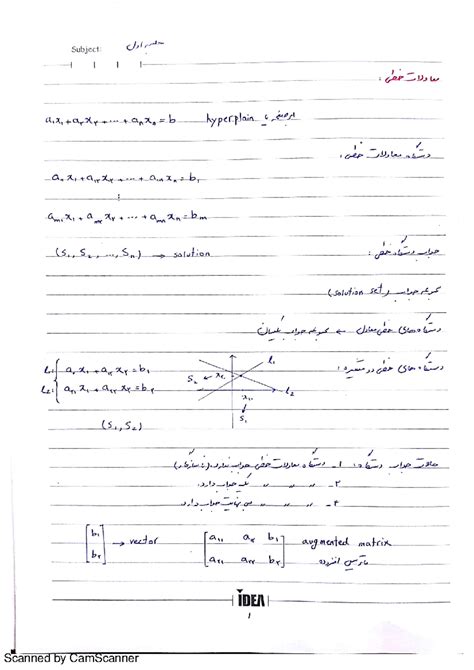 Subject: جلسه اول
معادلات خطی:
a₁x₁+a₂x₂+...+aₙxₙ=b hyperplain یا ابرصفحه
دستگاه معادلات خطی:
a₁₁x₁+a₁₂x₂+...+a₁ₙxₙ=b₁
⋮
aₘ₁x₁+aₘ₂x₂+...+aₘₙxₙ=bₘ
جواب دستگاه خطی: (S₁, S₂, ..., Sₙ) → solution
مجموعه جواب (solution set)
دستگاه‌های خطی معادل ← مجموعه جواب یکسان
دستگاه‌های خطی دو متغیره:
L₁: a₁₁x₁+a₁₂x₂=b₁
L₂: a₂₁x₁+a₂₂x₂=b₂
S₂ ← x₂ x₁ ↓ S₁ L₁ L₂
(S₁, S₂)
حالات جواب دستگاه: ۱- دستگاه معادلات خطی جواب ندارد. (ناسازگار)
۲- " " " یک جواب دارد.
۳- " " " بی نهایت جواب دارد.
[b₁ b₂] → vector [a₁₁ a₁₂ b₁ a₂₁ a₂₂ b₂] augmented matrix
ماتریس افزوده
IDEA
۱
Scanned by CamScanner